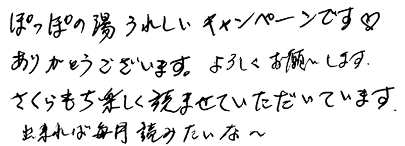 ぽっぽの湯うれしいキャンペーンです♡
ありがとうございます。よろしくお願いします.
さくらもち楽しく読ませていただいています.
出来れば毎月読みたいな〜